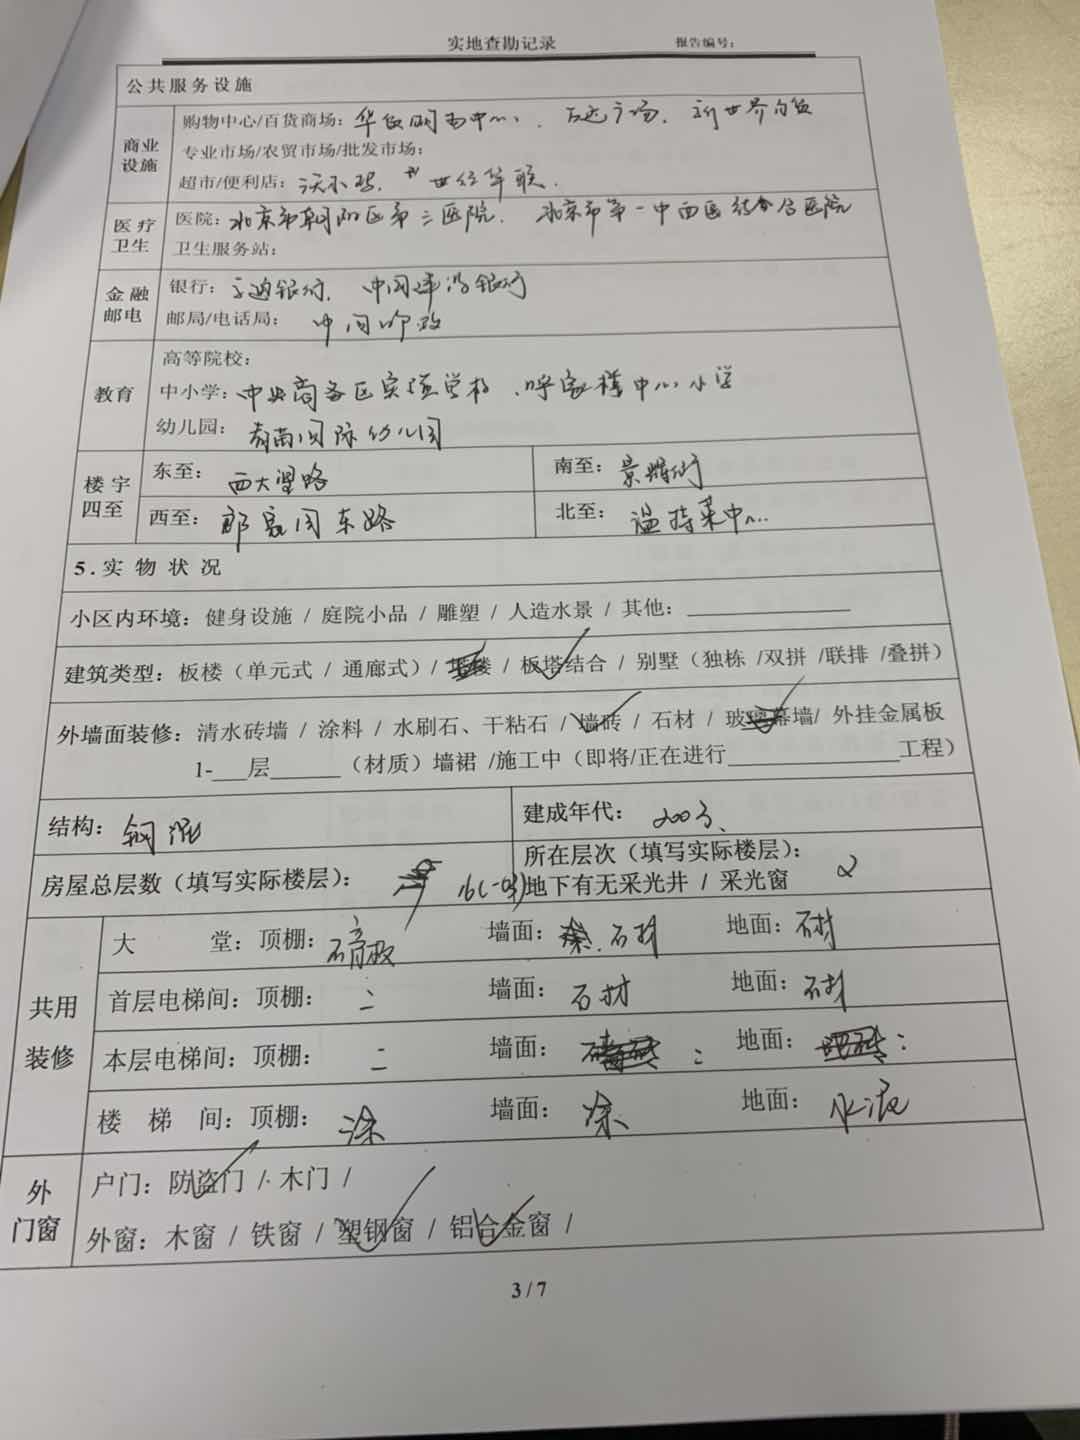 实地查勘记录 报告编号：
公共服务设施
商业设施
购物中心/百货商场：华贸购物中心、万达广场、新世界百货
专业市场/农贸市场/批发市场：
超市/便利店：沃尔玛、世纪华联.
医疗卫生
医院：北京市朝阳区第二医院、北京市第一中西医结合医院
卫生服务站：
金融邮电
银行：宁波银行、中国建设银行
邮局/电话局：中国邮政
教育
高等院校：
中小学：中央商务区实验学校、呼家楼中心小学
幼儿园：国际幼儿园
楼宇四至
东至：西大望路 南至：景辉街
西至：郎家园东路 北至：温特莱中心
5.实物状况
小区内环境：健身设施 / 庭院小品 / 雕塑 / 人造水景 / 其他：
建筑类型：板楼（单元式 / 通廊式）/ 塔楼 / 板塔结合 / 别墅（独栋 /双拼 /联排 /叠拼）
外墙面装修：清水砖墙 / 涂料 / 水刷石、干粘石 / 墙砖 / 石材 / 玻璃幕墙/ 外挂金属板
1-___层______（材质）墙裙 /施工中（即将/正在进行______________工程）
结构：钢混 建成年代：2003、
房屋总层数（填写实际楼层）：16(-03) 所在层次（填写实际楼层）：2
地下有无采光井 / 采光窗
共用装修
大堂：顶棚：石膏板 墙面：石材 地面：石材
首层电梯间：顶棚：〃 墙面：石材 地面：石材
本层电梯间：顶棚：〃 墙面：〃 地面：〃
楼梯间：顶棚：涂 墙面：涂 地面：水泥
外门窗
户门：防盗门 / 木门 /
外窗：木窗 / 铁窗 / 塑钢窗 / 铝合金窗 /
3 / 7